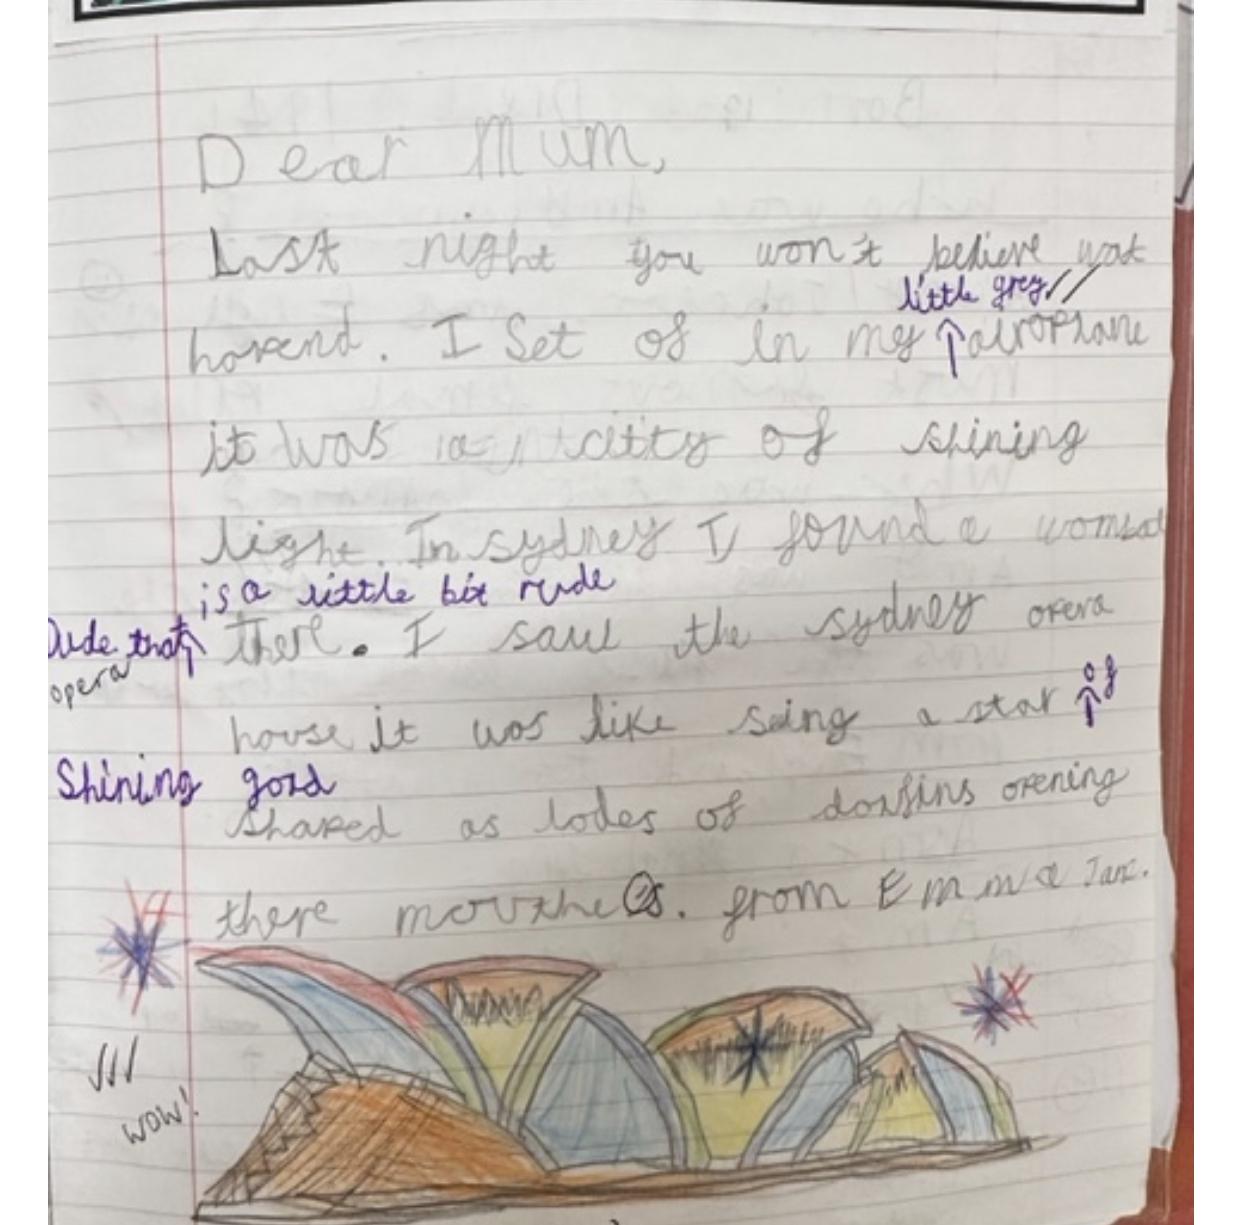 Dear Mum,
Last night you won't believe wat
little grey
harend. I Set of in my airoplane
it was a citty of shining
light. In sydney I found a wombat
is a little bit rude
Dude that there. I saw the sydney opera
opera
house it was like seing a star of
Shining gold
shaped as lodes of dolfins opening
there mouthes. from Emma Jane.
wow!